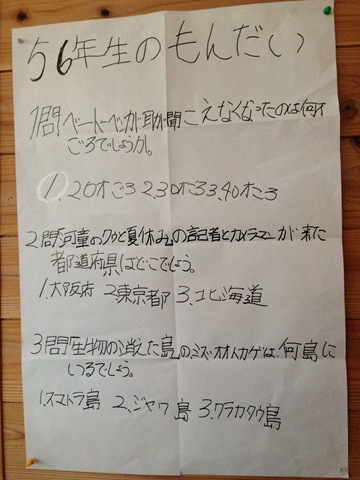 56年生のもんだい
1問ベートーベンが耳が聞こえなくなったのは何才
ごろでしょうか。
1.20才ごろ 2.30才ごろ 3.40才ころ
2問『河童のクゥと夏休み』の記者とカメラマンが来た
都道府県はどこでしょう。
1.大阪府 2東京都 3.北海道
3問『生物の消えた島』のミズオオトカゲは何島に
いるでしょう。
1.スマトラ島 2.ジャワ島 3.クラカタウ島